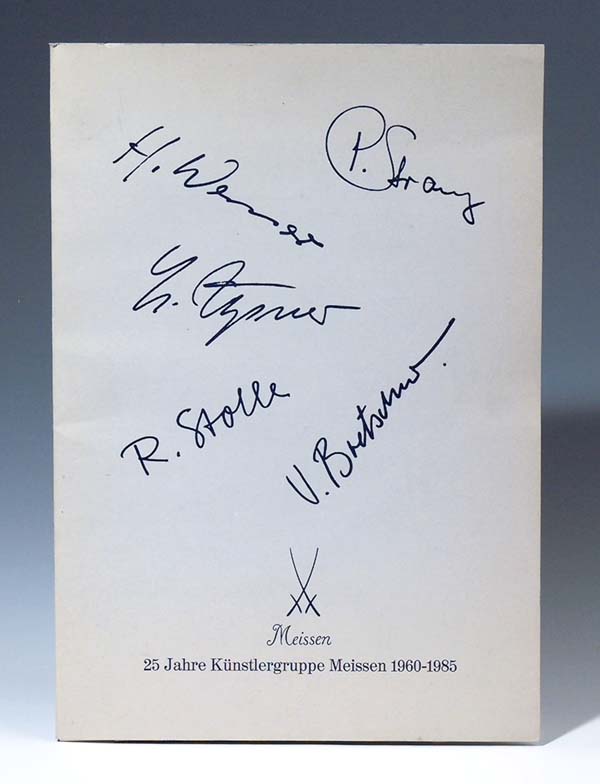 H. Werner
P. Strang
L. Zepner
R. Stolle
V. Bretschn.
Meissen
25 Jahre Künstlergruppe Meissen 1960-1985